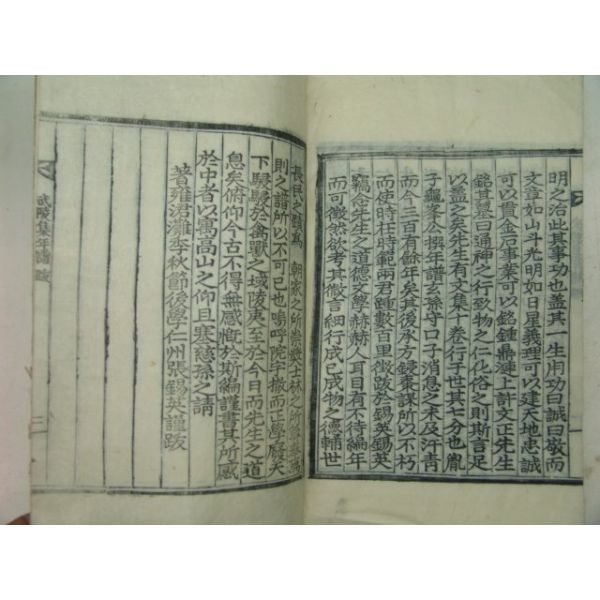 明之治此其事功也盖其一生用功曰誠曰敬而
文章如山斗光明如日星義理可以建天地忠誠
可以貫金石事業可以銘鍾鼎漣上許文正先生
銘其墓曰通神之行致物之仁化俗之則斯言足
以盖之矣先生有文集十卷行于世其七分也胤
子龜峯公撰年譜玄孫守口子消息之未及汗青
而今三百有餘年矣其後承方鋟棗謀所以不朽
而使時在時範兩君踵數百里徵跋於錫英錫英
竊念先生之道德文學赫赫人耳目有不待編年
而可徵然欲考其微言細行成己成物之德輔世
長民之 爲 朝家之所崇 士林之所
則之譜所以不可已也嗚呼院宇撤而正學廢天
下駸駸於禽獸之域陵夷至於今日而先生之道
息矣俯仰今古不得無感慨於斯編謹書其所感
於中者以寓高山之仰且塞慈孫之請
著雍涒灘季秋節後學仁州張錫英謹跋
武陵集年譜跋
三